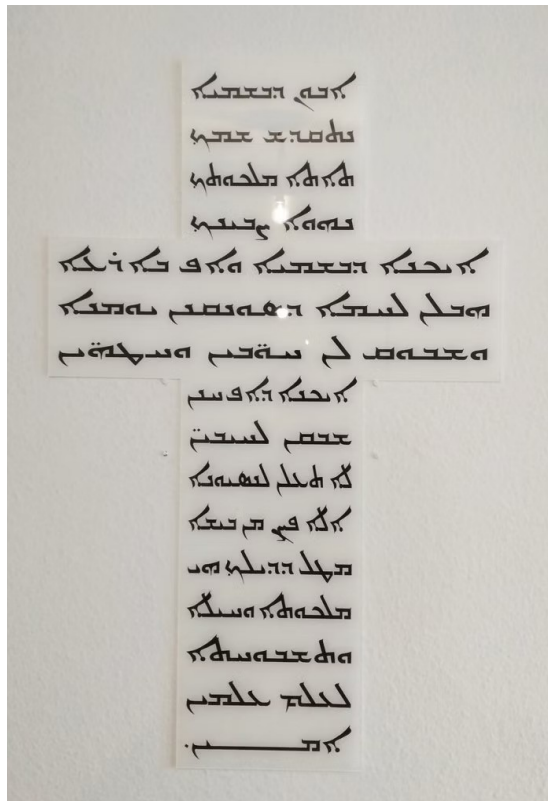 ܐܒܘܢ ܕܒܫܡܝܐ
ܢܬܩܕܫ ܫܡܟ
ܬܐܬܐ ܡܠܟܘܬܟ
ܢܗܘܐ ܨܒܝܢܟ
ܐܝܟܢܐ ܕܒܫܡܝܐ ܘܐܦ ܒܐܪܥܐ
ܗܒܠܢ ܠܚܡܐ ܕܣܘܢܩܢܢ ܝܘܡܢܐ
ܘܫܒܘܩ ܠܢ ܚܘ̈ܒܝܢ ܘܚܛܗ̈ܝܢ
ܐܝܟܢܐ ܕܐܦ ܚܢܢ
ܫܒܩܢ ܠܚܝܒܝ̈ܢ
ܠܐ ܬܥܠܢ ܠܢܣܝܘܢܐ
ܐܠܐ ܦܨܢ ܡܢ ܒܝܫܐ
ܡܛܠ ܕܕܝܠܟ ܗܝ
ܡܠܟܘܬܐ ܘܚܝܠܐ
ܘܬܫܒܘܚܬܐ
ܠܥܠܡ ܥܠܡܝܢ
ܐܡـــــــــܝܢ.